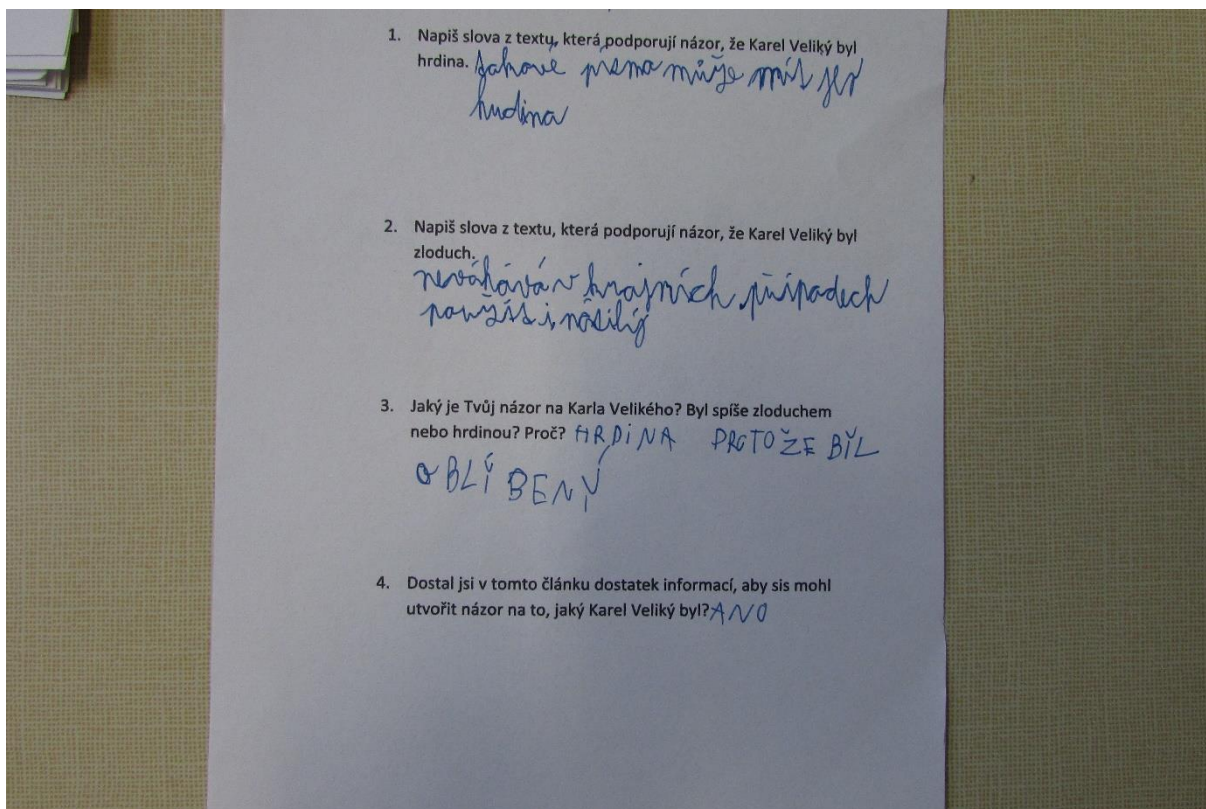 1. Napiš slova z textu, která podporují názor, že Karel Veliký byl
hrdina. takové písma může mít jen
hrdina
2. Napiš slova z textu, která podporují názor, že Karel Veliký byl
zloduch.
neváhává v krajních případech
použít i násilý
3. Jaký je Tvůj názor na Karla Velikého? Byl spíše zloduchem
nebo hrdinou? Proč? HRDiNA PROTOŽE BIL
OBLÍBENÝ
4. Dostal jsi v tomto článku dostatek informací, aby sis mohl
utvořit názor na to, jaký Karel Veliký byl? ANO